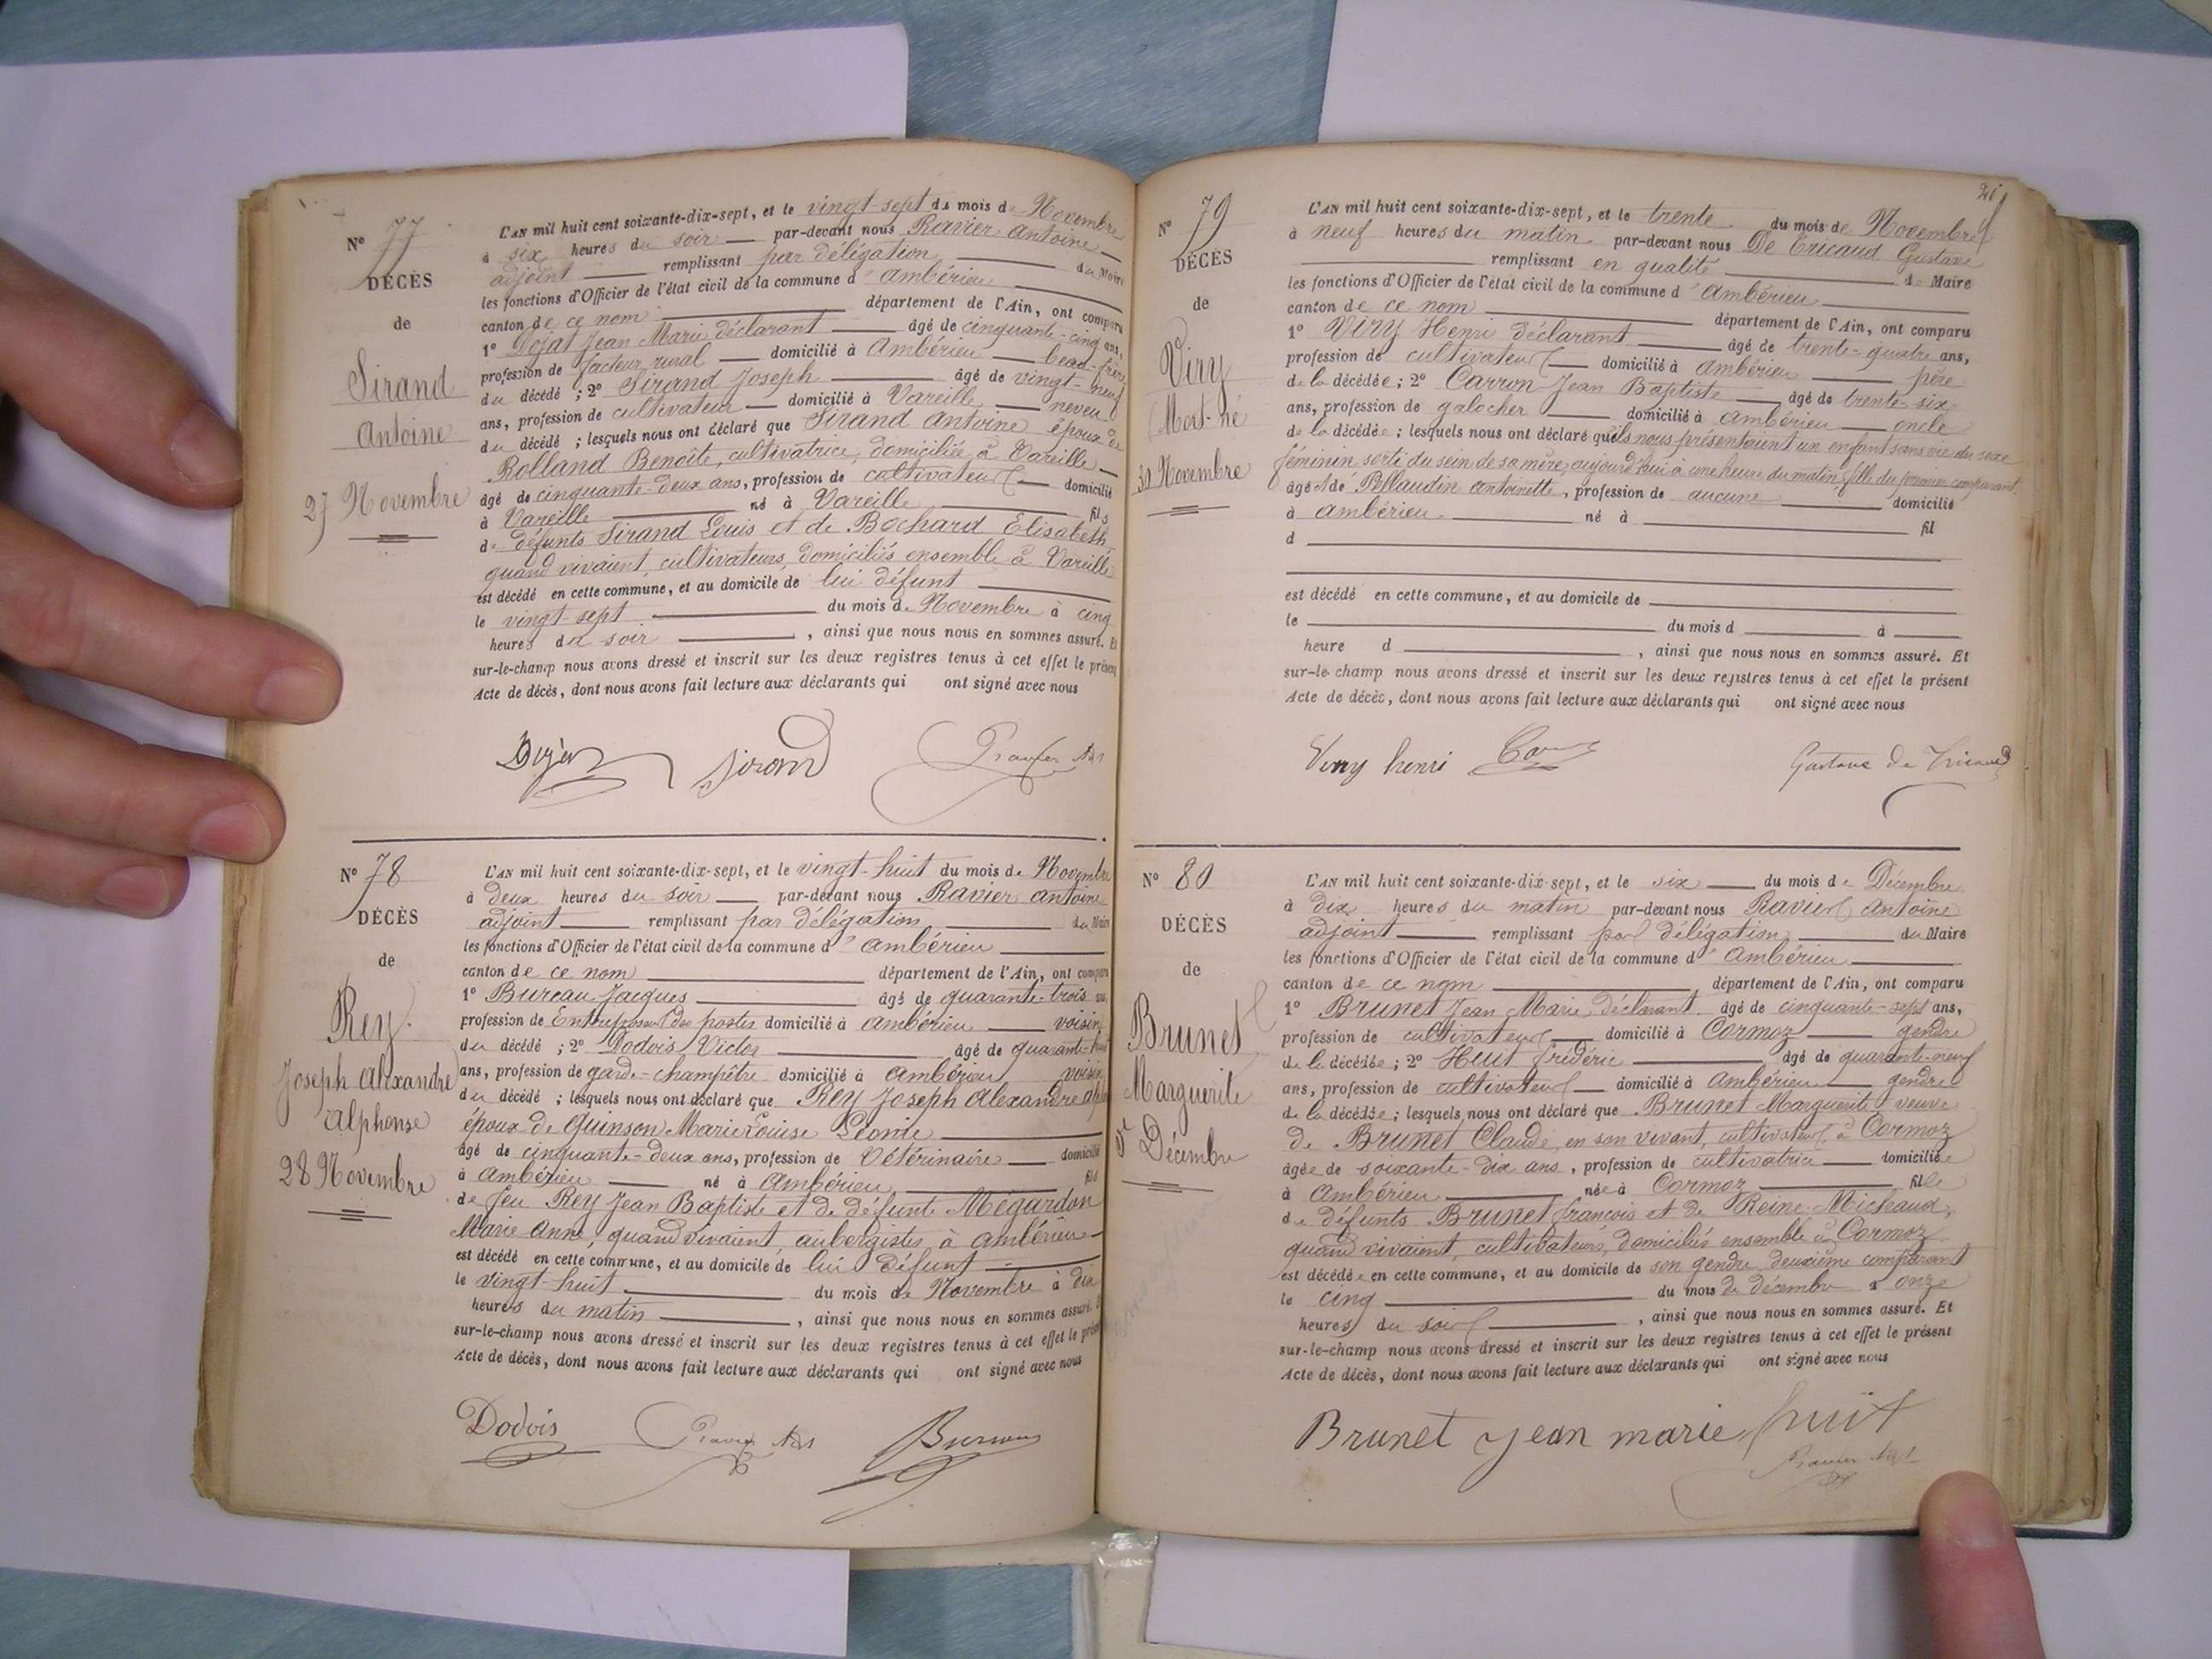 N° 77
DÉCÈS
de
Sirand
Antoine
27 Novembre
L'AN mil huit cent soixante-dix-sept, et le vingt-sept du mois de Novembre
à six heures du soir par-devant nous Ravier Antoine
adjoint remplissant par délégation du Maire
les fonctions d'Officier de l'état civil de la commune d'Ambérieu
canton de ce nom département de l'Ain, ont comparu
1° Dojat Jean Marie déclarant âgé de cinquante-cinq ans,
profession de facteur rural domicilié à Ambérieu beau-frère
du décédé ; 2° Sirand Joseph âgé de vingt-neuf
ans, profession de cultivateur domicilié à Vareille neveu
du décédé ; lesquels nous ont déclaré que Sirand Antoine époux de
Rolland Benoîte, cultivatrice, domiciliée à Vareille
âgé de cinquante-deux ans, profession de cultivateur domicilié
à Vareille né à Vareille fils
de défunts Sirand Louis et de Bochard Elisabeth
quand vivaient, cultivateurs, domiciliés ensemble à Vareille
est décédé en cette commune, et au domicile de lui défunt
le vingt-sept du mois de Novembre à cinq
heures du soir , ainsi que nous nous en sommes assuré. Et
sur-le-champ nous avons dressé et inscrit sur les deux registres tenus à cet effet le présent
Acte de décès, dont nous avons fait lecture aux déclarants qui ont signé avec nous
Sirand Ravier Adj
N° 78
DÉCÈS
de
Rey
Joseph Alexandre
Alphonse
28 Novembre
L'AN mil huit cent soixante-dix-sept, et le vingt-huit du mois de Novembre
à deux heures du soir par-devant nous Ravier Antoine
adjoint remplissant par délégation du Maire
les fonctions d'Officier de l'état civil de la commune d'Ambérieu
canton de ce nom département de l'Ain, ont comparu
1° Bureau Jacques âgé de quarante-trois ans,
profession de Entrepreneur des postes domicilié à Ambérieu voisin
du décédé ; 2° Dodois Victor âgé de quarante-huit
ans, profession de garde-champêtre domicilié à Ambérieu voisin
du décédé ; lesquels nous ont déclaré que Rey Joseph Alexandre Alph
époux de Guinson Marie Louise Léonie
âgé de cinquante-deux ans, profession de Vétérinaire domicilié
à Ambérieu né à Ambérieu fils
de feu Rey Jean Baptiste et de défunte Mégardon
Marie Anne, quand vivaient, aubergistes à Ambérieu
est décédé en cette commune, et au domicile de lui défunt
le vingt-huit du mois de Novembre à dix
heures du matin , ainsi que nous nous en sommes assuré. Et
sur-le-champ nous avons dressé et inscrit sur les deux registres tenus à cet effet le présent
Acte de décès, dont nous avons fait lecture aux déclarants qui ont signé avec nous
Dodois Ravier Adj Bureau
N° 79
DÉCÈS
de
Viry
Mort-né
30 Novembre
L'AN mil huit cent soixante-dix-sept, et le trente du mois de Novembre
à neuf heures du matin par-devant nous De Tricaud Gustave
remplissant en qualité de Maire
les fonctions d'Officier de l'état civil de la commune d'Ambérieu
canton de ce nom département de l'Ain, ont comparu
1° Viry Henri déclarant âgé de trente-quatre ans,
profession de cultivateur domicilié à Ambérieu père
de la décédée ; 2° Carron Jean Baptiste âgé de trente-six
ans, profession de galocher domicilié à Ambérieu oncle
de la décédée ; lesquels nous ont déclaré qu'ils nous présentaient un enfant sans vie du sexe
féminin sorti du sein de sa mère, aujourd'hui à une heure du matin, fille du premier comparant
âgé et de Pellaudin Antoinette, profession de aucune domicilié
à Ambérieu né à fil
d
est décédé en cette commune, et au domicile de
le du mois d à
heure d , ainsi que nous nous en sommes assuré. Et
sur-le-champ nous avons dressé et inscrit sur les deux registres tenus à cet effet le présent
Acte de décès, dont nous avons fait lecture aux déclarants qui ont signé avec nous
Viry henri Gustave de Tricaud
N° 80
DÉCÈS
de
Brunet
Marguerite
5 Décembre
L'AN mil huit cent soixante-dix-sept, et le six du mois de Décembre
à dix heures du matin par-devant nous Ravier Antoine
adjoint remplissant par délégation du Maire
les fonctions d'Officier de l'état civil de la commune d'Ambérieu
canton de ce nom département de l'Ain, ont comparu
1° Brunet Jean Marie, déclarant âgé de cinquante-sept ans,
profession de cultivateur domicilié à Cormoz gendre
de la décédée ; 2° Huit frédéric âgé de quarante-neuf
ans, profession de cultivateur domicilié à Ambérieu gendre
de la décédée ; lesquels nous ont déclaré que Brunet Marguerite veuve
de Brunet Claude, en son vivant, cultivateur à Cormoz
âgée de soixante-dix ans, profession de cultivatrice domiciliée
à Ambérieu née à Cormoz fille
de défunts Brunet françois et de Reine Micheaud,
quand vivaient, cultivateurs, domiciliés ensemble à Cormoz
est décédée en cette commune, et au domicile de son gendre deuxième comparant
le cinq du mois de décembre à onze
heures du soir , ainsi que nous nous en sommes assuré. Et
sur-le-champ nous avons dressé et inscrit sur les deux registres tenus à cet effet le présent
Acte de décès, dont nous avons fait lecture aux déclarants qui ont signé avec nous
Brunet jean marie huit
Ravier Adj